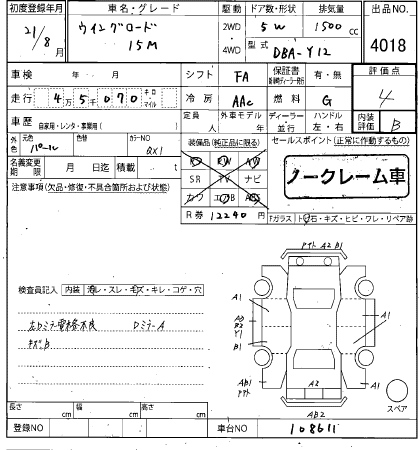 初度登録年月 車名・グレード 駆動 ドア数・形状 排気量 出品NO.
21/8月 ウイングロード 15M 2WD 4WD 5W 1500cc 4018
型式 DBA-Y12
車検 年 月 シフト FA 保証書 有・無 評価点 4
走行 4万5千070 キロ マイル 冷房 AAC 燃料 G
車歴 自家用・レンタ・事業用( ) 定員 人 外車モデル 年 ディーラー 並行 ハンドル 左・右 内装評価 B
外色 元色 パール 色替 カラーNO QX1 装備品(純正品に限る) セールスポイント(正常に作動するもの)
名義変更期限 月 日迄 積載 t SR TV ナビ ノークレーム車
注意事項(欠品・修復・不具合箇所および状態) カワ
R券 12240円 Fガラス トビ石・キズ・ヒビ・ワレ・リペア跡
A2 B1
検査員記入 内装 汚レ・スレ・キズ・キレ・コゲ・穴
A1 A1
左Dミラー電格不良 DミラーA
キズB
B1
AB1 A2 A1
AB2 スペア
長さ cm 幅 cm 高さ cm
登録NO 車台NO 108611